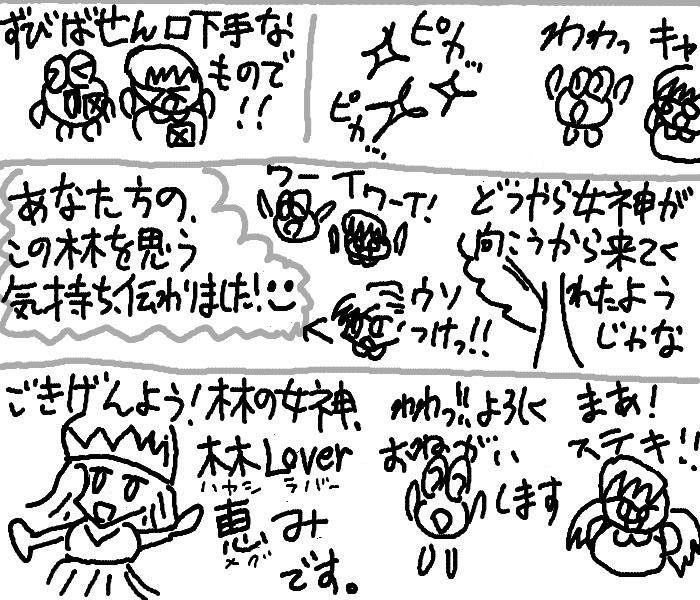 ずびばせん口下手な
もので
!!
ピカ
ピカ…
わわっ
キャ
あなた方の、
この林を思う
気持ち、伝わりました!
ワーイ
ワーイ!
ウソ
つけっ!!
どうやら女神が
向こうから来てく
れたよう
じゃな
ごきげんよう!林の女神、
林Lover
ハヤシ ラバー
恵み
メグ
です。
わわっ!!よろしく
おねがい
します
まあ!
ステキ!!